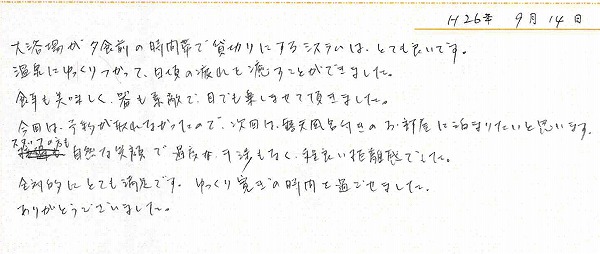 H26年 9月14日
大浴場が夕食前の時間帯で貸切りにするシステムは、とても良いです。
温泉にゆっくりつかって、日頃の疲れを癒すことができました。
食事も美味しく、器も素敵で、目でも楽しませて頂きました。
今回は、予約が取れなかったので、次回は、露天風呂付きのお部屋に泊まりたいと思います。
スタッフの方も 自然な笑顔で過度な干渉もなく、程良い距離感でした。
全体的にとても満足です。ゆっくり寛ぎの時間を過ごせました。
ありがとうございました。